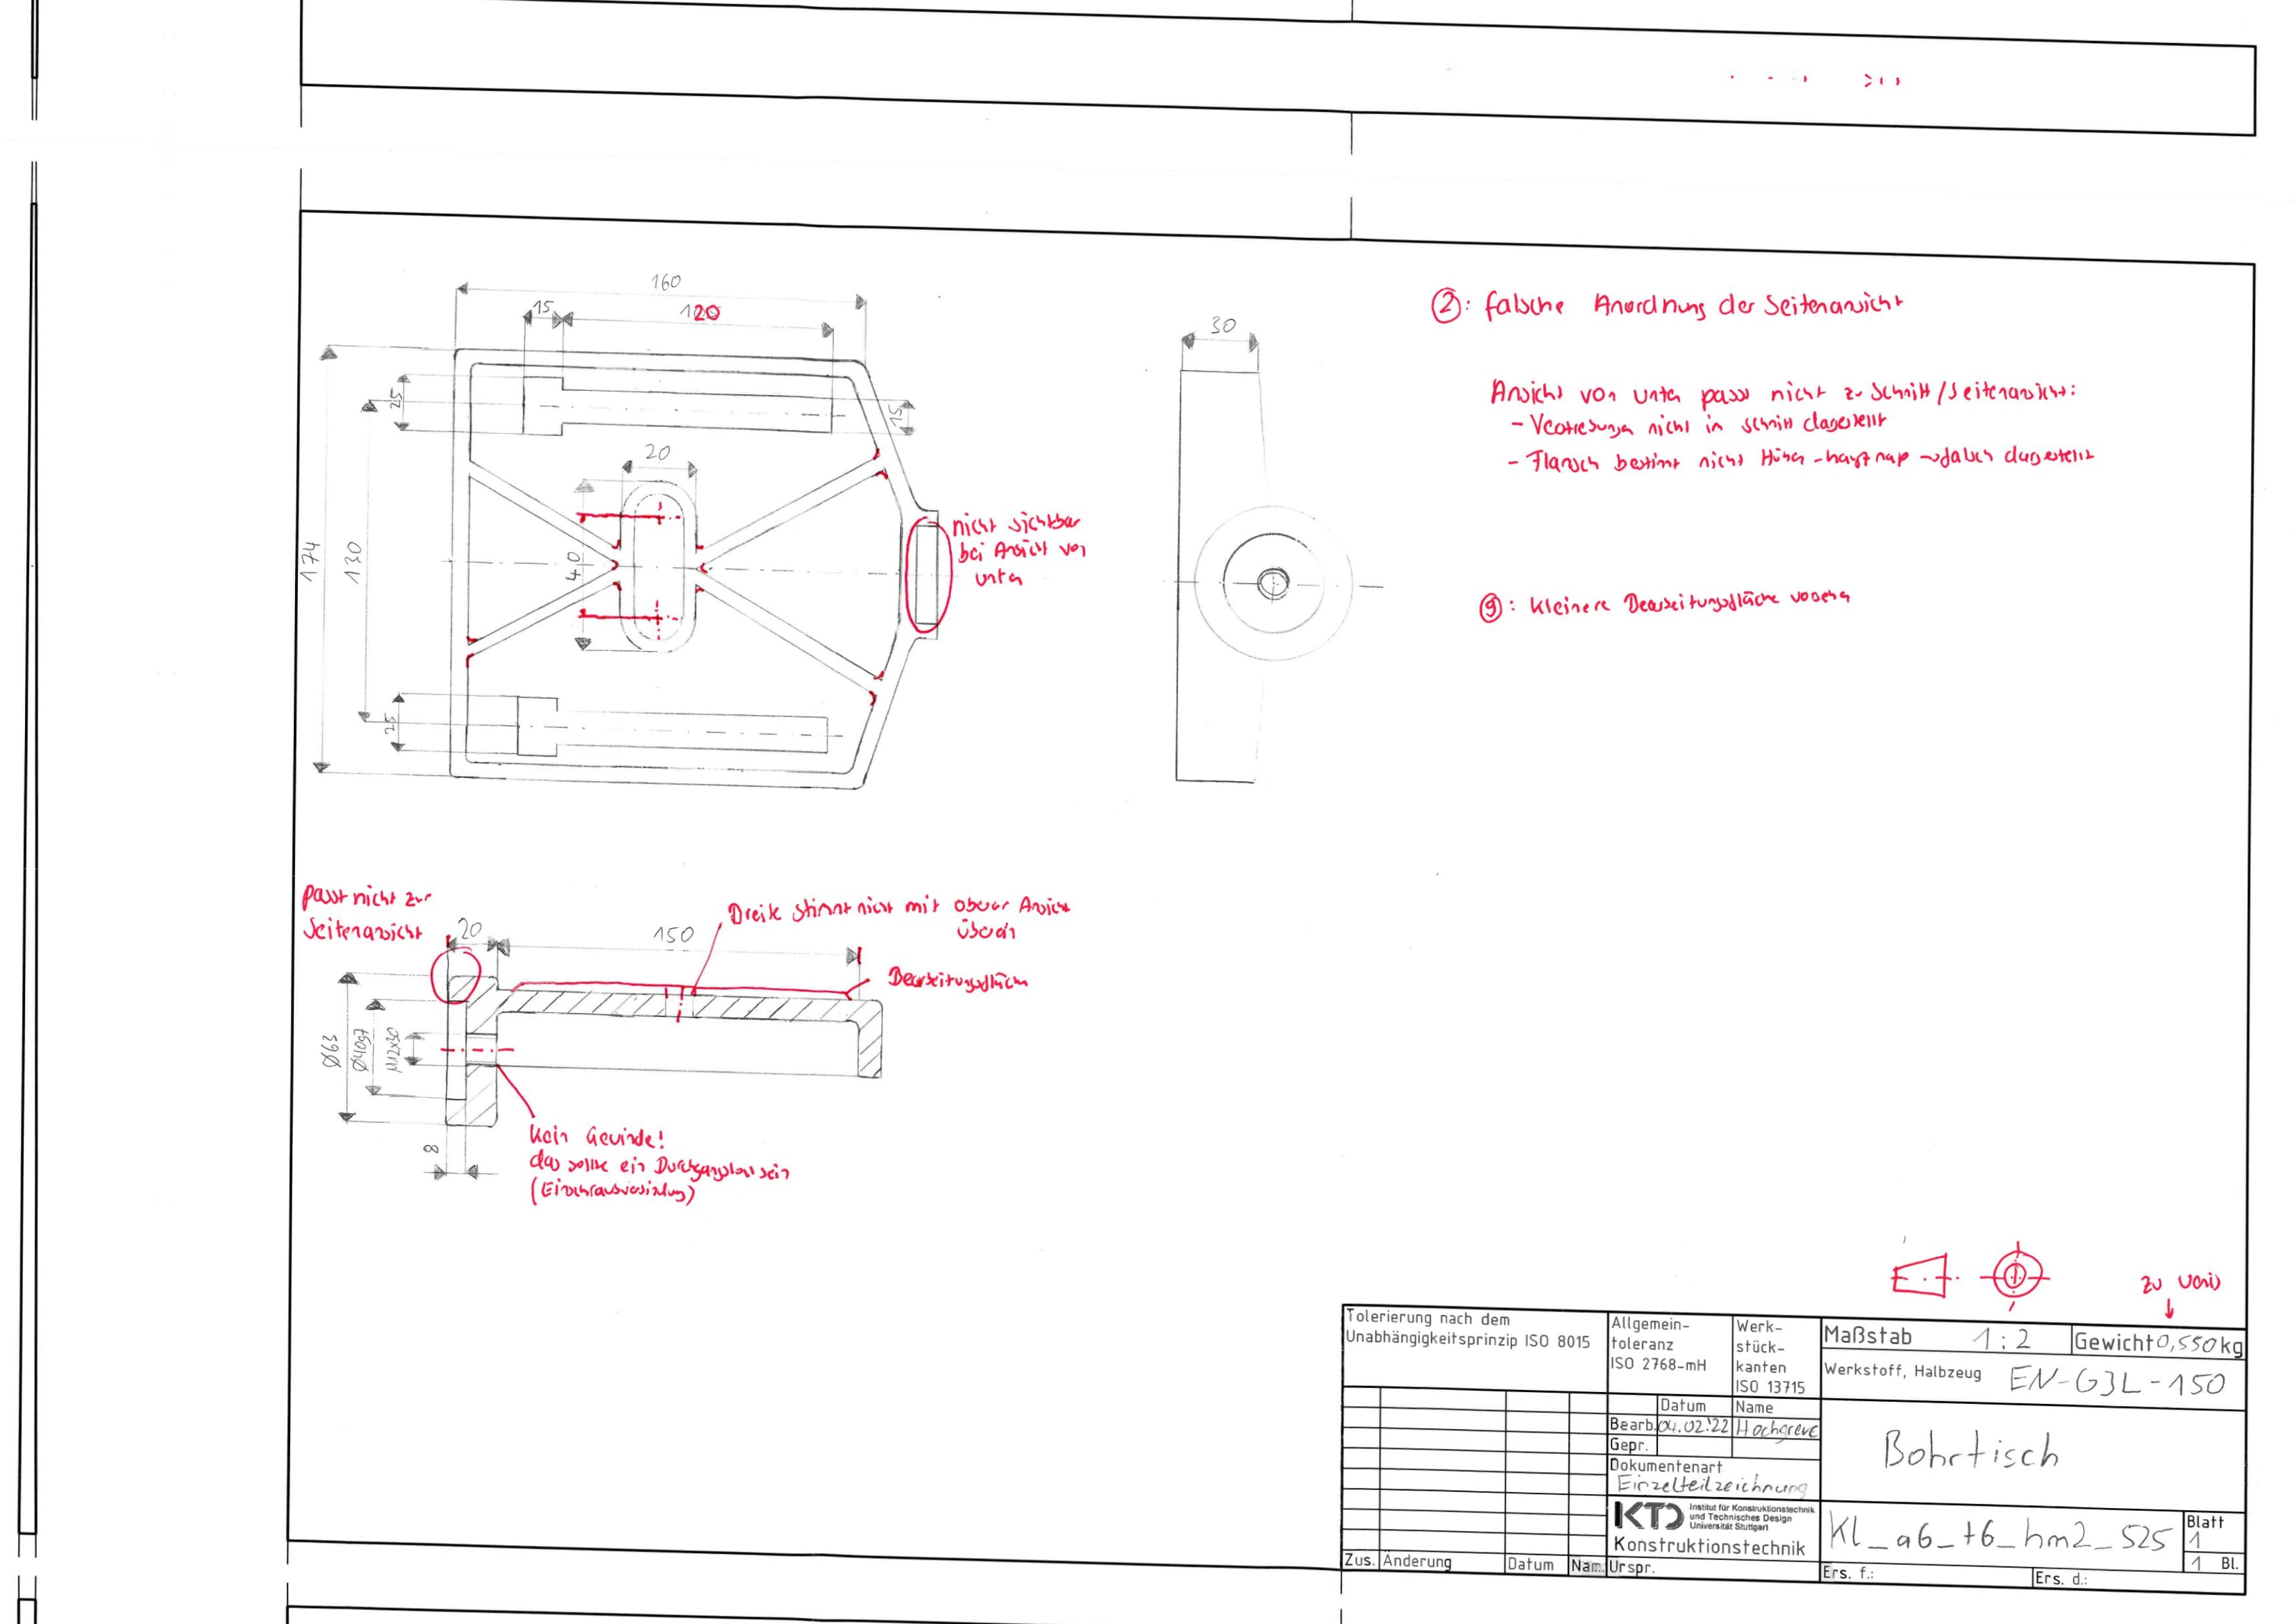 160
15
120
25
15
20
40
174
130
25
30
②: falsche Anordnung der Seitenansicht
Ansicht von unten passt nicht zu Schnitt/Seitenansicht:
- nicht in Schnitt dargestellt
- Flansch nicht dargestellt
nicht sichtbar
bei Ansicht von
unten
⑨: kleinere Bearbeitungsfläche vorsehen
passt nicht zur
Seitenansicht
20
150
Breite stimmt nicht mit oberer Ansicht
überein
Bearbeitungsfläche
Ø63
Ø40g7
M12x30
8
kein Gewinde!
das sollte ein Durchgangsloch sein
zu
Tolerierung nach dem
Unabhängigkeitsprinzip ISO 8015
Allgemein-
toleranz
ISO 2768-mH
Werk-
stück-
kanten
ISO 13715
Maßstab 1:2
Gewicht 0,550kg
Werkstoff, Halbzeug EN-GJL-150
Datum Name
Bearb. 04.02.22 Hochgreve
Gepr.
Dokumentenart
Einzelteilzeichnung
Bohrtisch
KTD Institut für Konstruktionstechnik
und Technisches Design
Universität Stuttgart
Konstruktionstechnik
Kl_a6_t6_hm2_S25
Blatt
1
1 Bl.
Zus. Änderung Datum Nam. Urspr.
Ers. f.: Ers. d.: